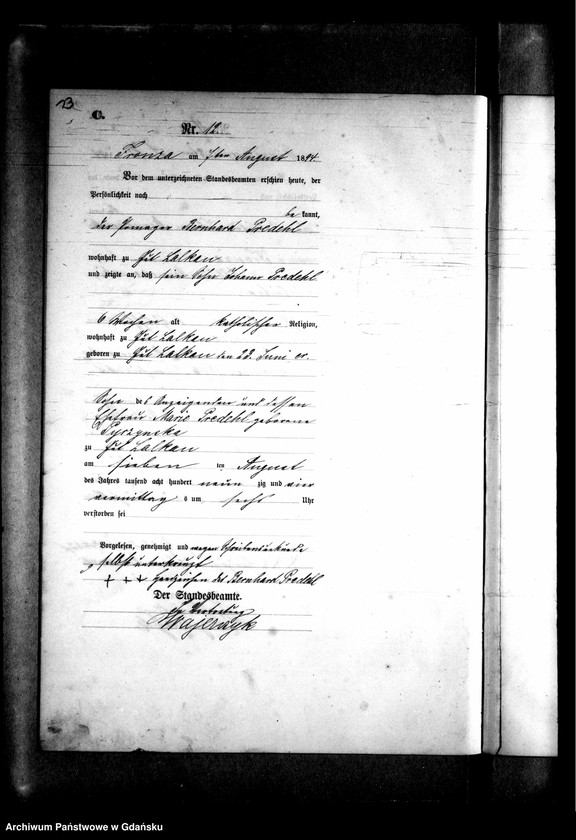 B
C.
Nr. 12.
Fronza am 7ten August 1894
Vor dem unterzeichneten Standesbeamten erschien heute, der
Persönlichkeit nach
be kannt,
der Bernhard Predehl
wohnhaft zu Gut Lalkau
und zeigte an, daß sein Sohn Johann Predehl
6 Wochen alt katholischer Religion,
wohnhaft zu Gut Lalkau
geboren zu Gut Lalkau den 22. Juni cr.
Sohn des Anzeigenden und dessen
Ehefrau Marie Predehl geborene
zu Gut Lalkau
am sieben ten August
des Jahres tausend acht hundert neun zig und vier
vormittag s um sechs Uhr
verstorben sei
Vorgelesen, genehmigt und wegen Schreibensunkunde
selbst unterkreuzt
+ + + Handzeichen des Bernhard Predehl
Der Standesbeamte.
In Vertretung
Archiwum Państwowe w Gdańsku